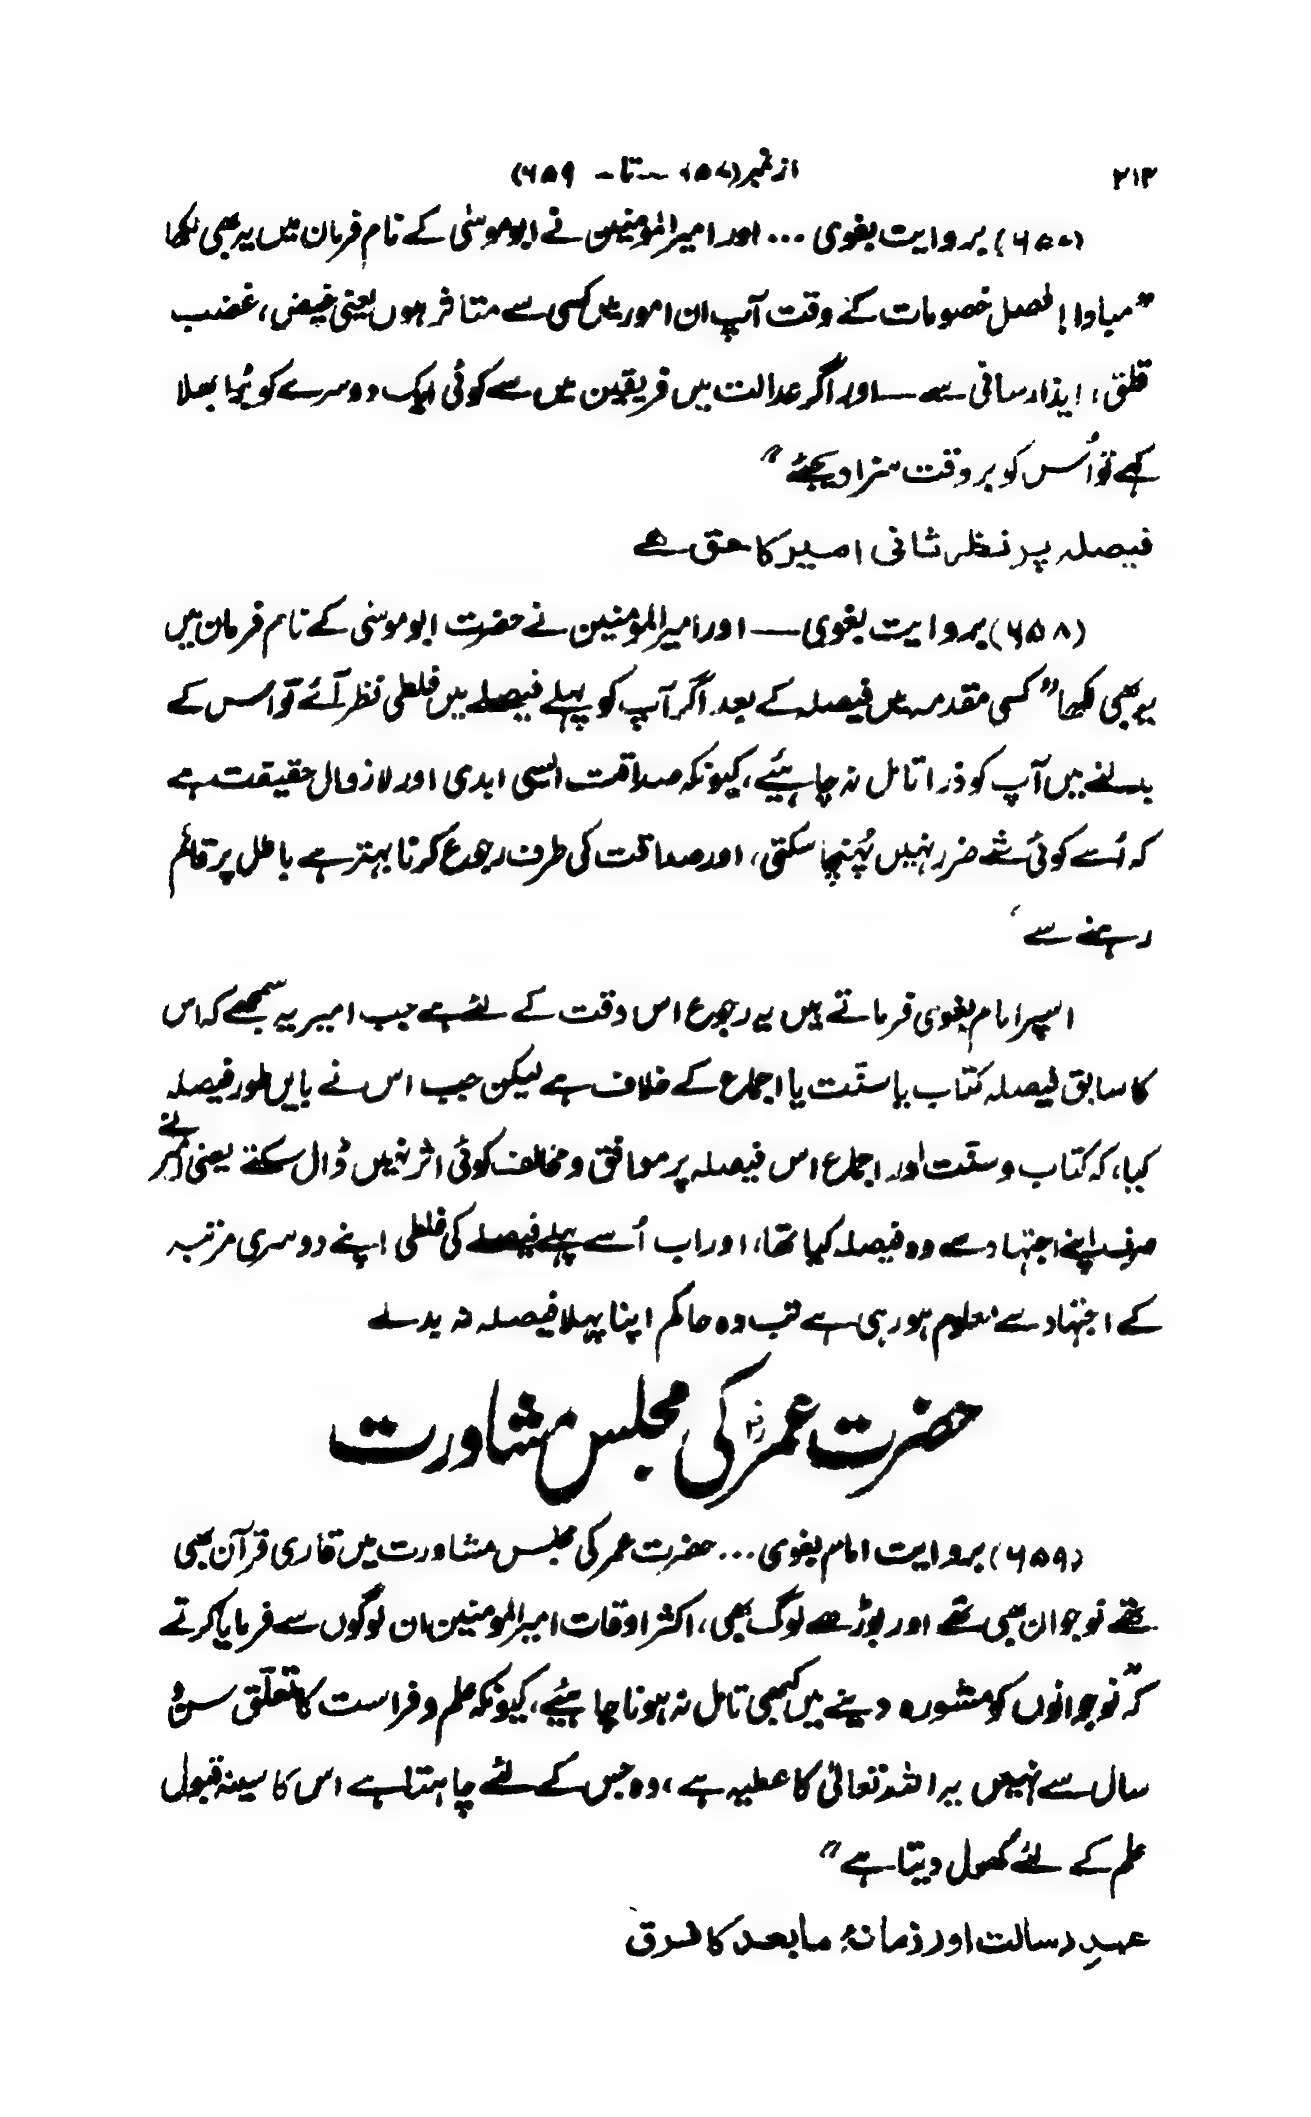 ۲۱۳ از نمبر (۶۵۷ — تا — ۶۵۹)
(۶۵۷) بروایت بغوی ... اور امیرالمؤمنین نے ابو موسٰی کے نام فرمان میں یہ بھی لکھا
”مبادا! فصل خصومات کے وقت آپ ان امور میں کسی سے متاثر ہوں یعنی غیض، غضب
قلق، ایذا رسانی سے — اور اگر عدالت میں فریقین میں سے کوئی ایک دوسرے کو بُرا بھلا
کہے تو اُس کو بر وقت سزا دیجئے“
فیصلہ پر نظر ثانی امیر کا حق ہے
(۶۵۸) بروایت بغوی — اور امیرالمؤمنین نے حضرت ابو موسٰی کے نام فرمان میں
یہ بھی لکھا ”کسی مقدمہ میں فیصلہ کے بعد اگر آپ کو پہلے فیصلے میں غلطی نظر آئے تو اس کے
بدلنے میں آپ کو ذرا تامل نہ چاہیئے، کیونکہ صداقت ایسی ابدی اور لازوال حقیقت ہے
کہ اُسے کوئی شے ضرر نہیں پُہنچا سکتی، اور صداقت کی طرف رجوع کرنا بہتر ہے باطل پر قائم
رہنے سے‘
اسپر امام بغوی فرماتے ہیں یہ رجوع اس وقت کے لئے ہے جب امیر یہ سمجھے کہ اس
کا سابق فیصلہ کتاب یا سنّت یا اجماع کے خلاف ہے لیکن جب اس نے بایں طور فیصلہ
کیا، کہ کتاب و سنّت اور اجماع اس فیصلہ پر موافق و مخالف کوئی اثر نہیں ڈال سکتے یعنی امیر نے
صرف اپنے اجتہاد سے وہ فیصلہ کیا تھا، اور اب اُسے پہلے فیصلے کی غلطی اپنے دوسری مرتبہ
کے اجتہاد سے معلوم ہو رہی ہے تب وہ حاکم اپنا پہلا فیصلہ نہ بدلے
حضرت عمرؓ کی مجلس مشاورت
(۶۵۹) بروایت امام بغوی ... حضرت عمر کی مجلس مشاورت میں قاری قرآن بھی
تھے نوجوان بھی تھے اور بوڑھے لوگ بھی، اکثر اوقات امیرالمومنین ان لوگوں سے فرمایا کرتے
کہ ”نوجوانوں کو مشورہ دینے میں کبھی تامل نہ ہونا چاہیئے، کیونکہ علم و فراست کا تعلّق سن و
سال سے نہیں یہ اللہ تعالٰی کا عطیہ ہے، وہ جس کے لئے چاہتا ہے اس کا سینہ قبول
علم کے لئے کھول دیتا ہے“
عہدِ رسالت اور زمانۂ مابعد کا فرق